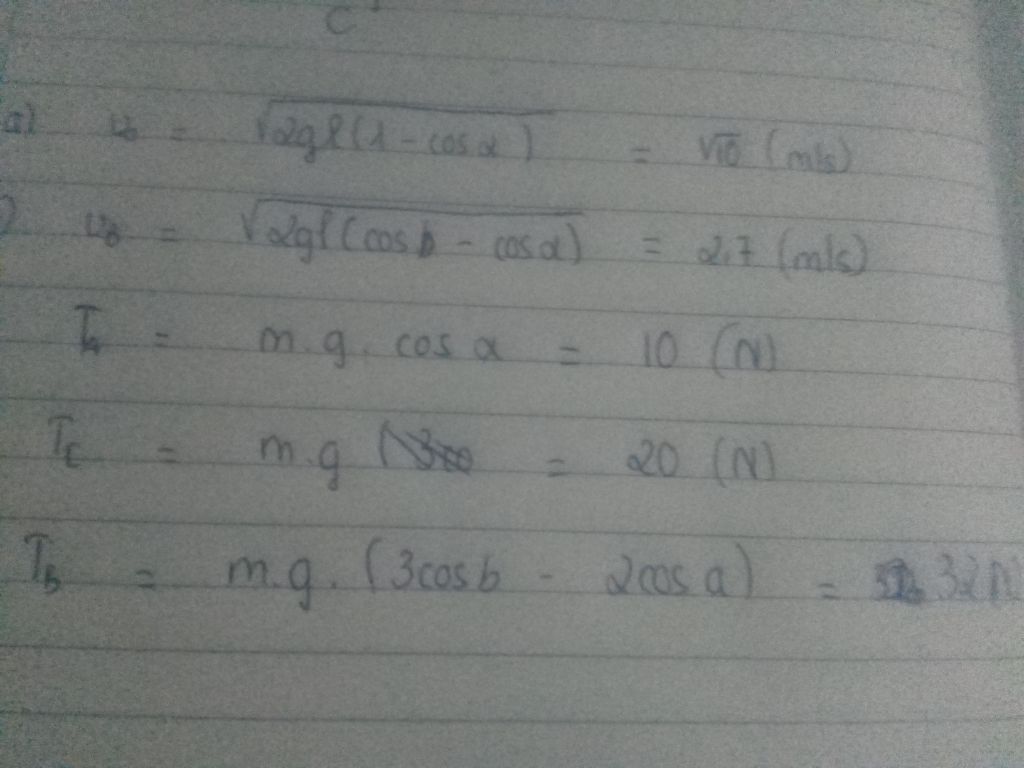 C
a) v₀ = √2gl(1 - cosα) = √10 (m/s)
) v_B = √2gl(cosb - cosα) = 2,7 (m/s)
T_A = m.g. cos α = 10 (N)
T_C = m.g = 20 (N)
T_b = m.g. (3cosb - 2cosa) = 32N